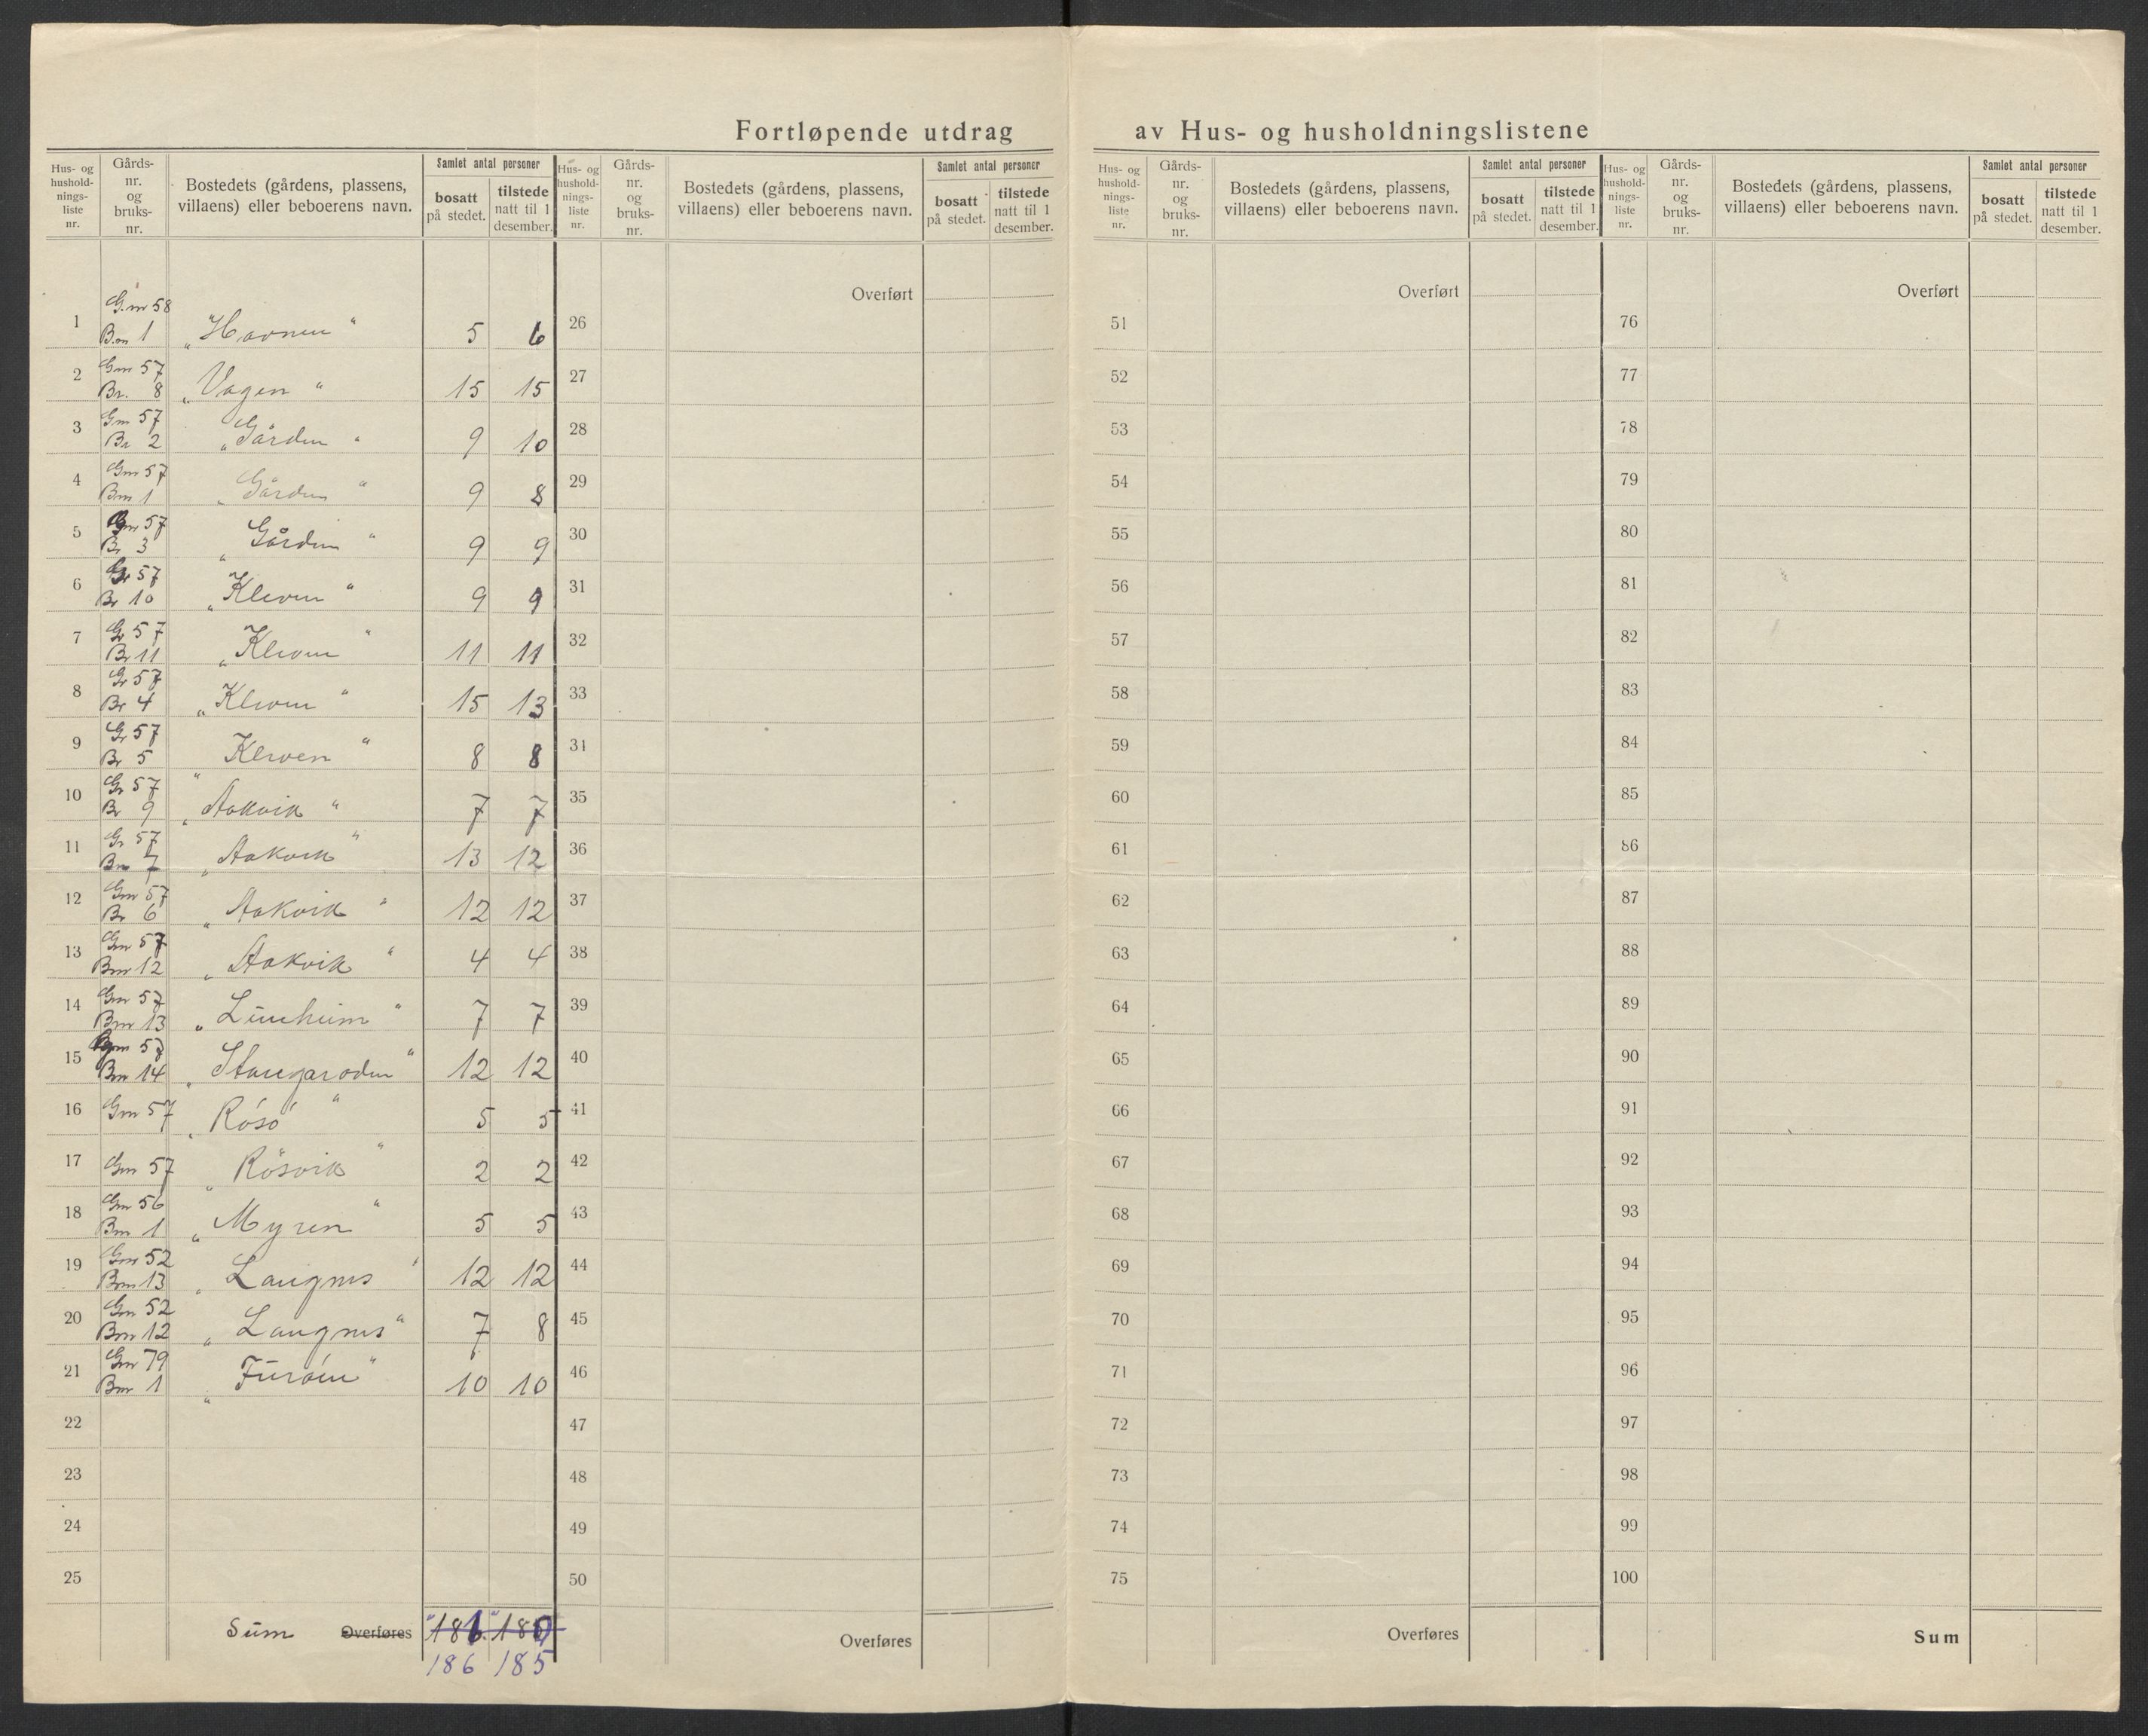 Fortløpende utdrag av Hus- og husholdningslistene
Hus- og hushold- nings- liste nr. | Gårds- nr. og bruks- nr. | Bostedets (gårdens, plassens, villaens) eller beboerens navn. | Samlet antal personer | bosatt på stedet. | tilstede natt til 1 desember.
Hus- og hushold- nings- liste nr. | Gårds- nr. og bruks- nr. | Bostedets (gårdens, plassens, villaens) eller beboerens navn. | Samlet antal personer | bosatt på stedet. | tilstede natt til 1 desember.
Hus- og hushold- nings- liste nr. | Gårds- nr. og bruks- nr. | Bostedets (gårdens, plassens, villaens) eller beboerens navn. | Samlet antal personer | bosatt på stedet. | tilstede natt til 1 desember.
Hus- og hushold- nings- liste nr. | Gårds- nr. og bruks- nr. | Bostedets (gårdens, plassens, villaens) eller beboerens navn. | Samlet antal personer | bosatt på stedet. | tilstede natt til 1 desember.
Overført Overført Overført
1 G.nr 58 B.nr 1 „Havnen" 5 6 26 51 76
2 Gnr 57 Br. 8 „Vagen" 15 15 27 52 77
3 Gnr 57 Br 2 „Gården" 9 10 28 53 78
4 Gnr 57 Bnr 1 „Gården" 9 8 29 54 79
5 Gnr 57 Br 3 „Gården" 9 9 30 55 80
6 Gr 57 Br 10 „Kleven" 9 9 31 56 81
7 Gr 57 Br 11 „Kleven" 11 11 32 57 82
8 Gr 57 Br 4 „Kleven" 15 13 33 58 83
9 Gr 57 Br 5 Kleven" 8 8 34 59 84
10 Gr 57 Br 9 „Aakvik" 7 7 35 60 85
11 Gr 57 Bnr 7 „Aakvik" 13 12 36 61 86
12 Gnr 57 Br 6 „Aakvik" 12 12 37 62 87
13 Gnr 57 Bnr 12 „Aakvik" 4 4 38 63 88
14 Gnr 57 Bnr 13 „ " 7 7 39 64 89
15 Gnr 57 Bnr 14 „ " 12 12 40 65 90
16 Gnr 57 „Rósó" 5 5 41 66 91
17 Gnr 57 „Rösvik" 2 2 42 67 92
18 Gnr 56 Bnr 1 „Myren" 5 5 43 68 93
19 Gnr 52 Bnr 13 „Langnes" 12 12 44 69 94
20 Gnr 52 Bnr 12 „Langnes" 7 8 45 70 95
21 Gnr 79 Bnr 1 „Furóen" 10 10 46 71 96
22 47 72 97
23 48 73 98
24 49 74 99
25 50 75 100
Sum Overføres Overføres Overføres Sum
186 185